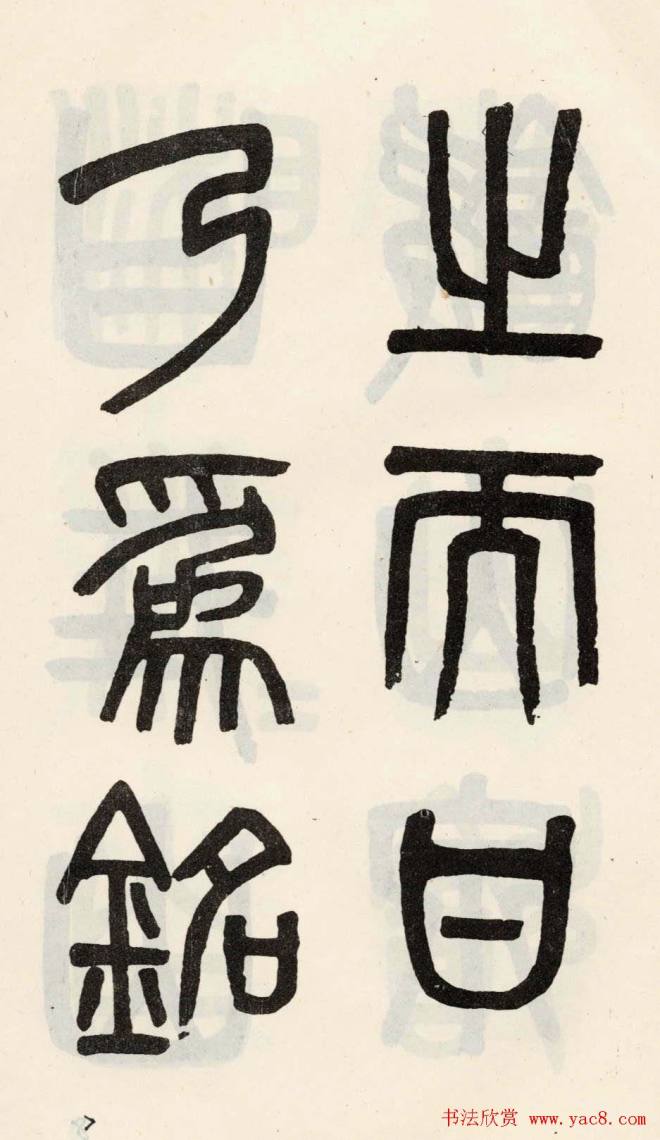 之而甘
乃為銘
书法欣赏 www.yac8.com